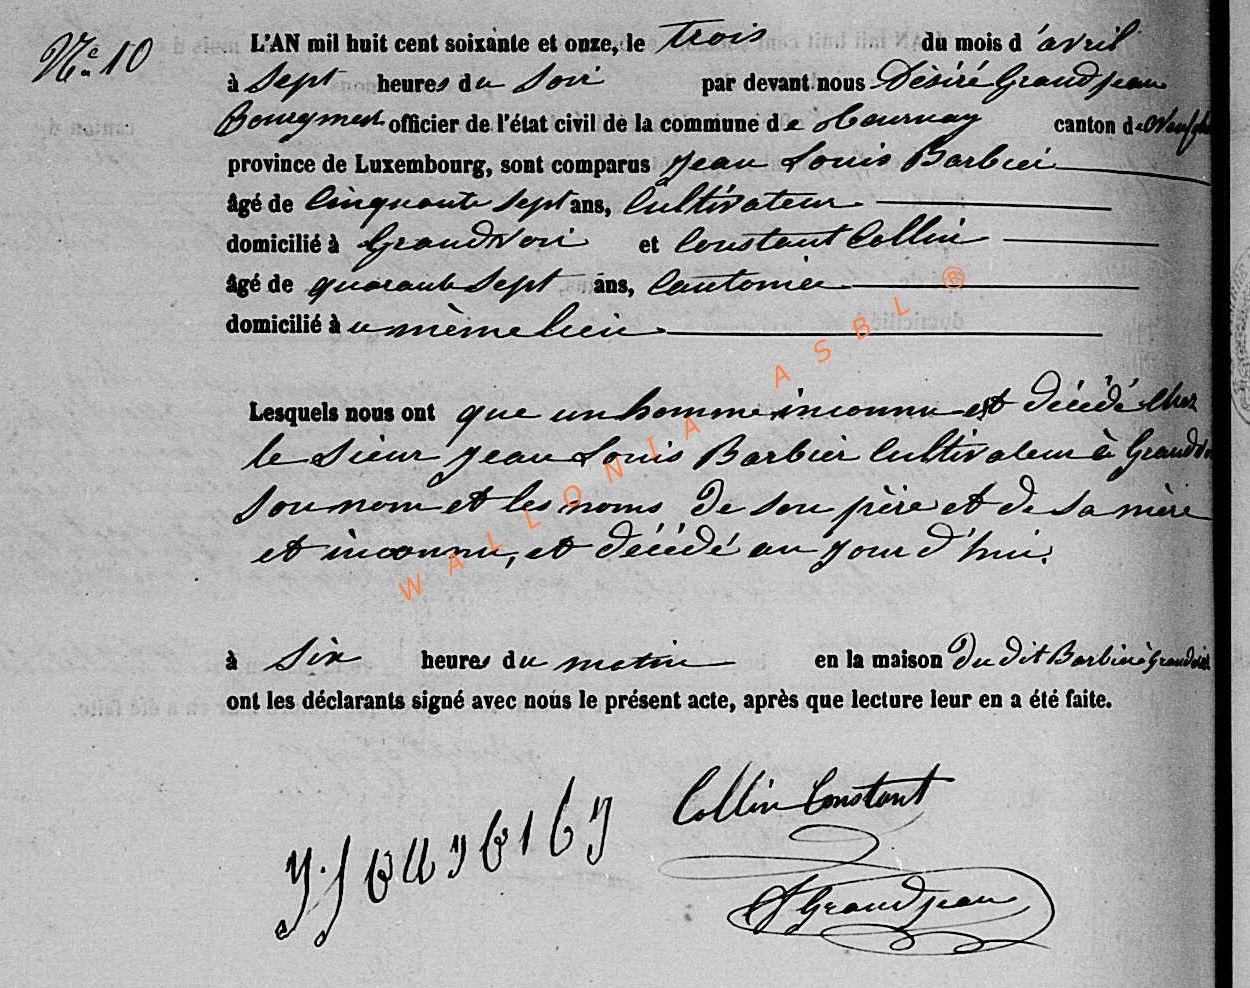 N° 10
L'AN mil huit cent soixante et onze, le trois du mois d'avril
à sept heures du soir par devant nous Désiré Grandjean
Bourgmest officier de l'état civil de la commune de Tournay canton de Neufch
province de Luxembourg, sont comparus Jean Louis Barbier
âgé de Cinquante sept ans, Cultivateur
domicilié à Grandvoir et Constant Collin
âgé de quarante sept ans, Cantonier
domicilié à u même lieu
Lesquels nous ont que un homme inconnu est décédé chez
le sieur Jean Louis Barbier Cultivateur à Grandvoi
son nom et les noms de son père et de sa mère
et inconnu, et décédé au jour d'hui.
à six heures du matin en la maison du dit Barbier à Grandvoir
ont les déclarants signé avec nous le présent acte, après que lecture leur en a été faite.
Collin Constant
Grandjean
WALLONIA ASBL ®